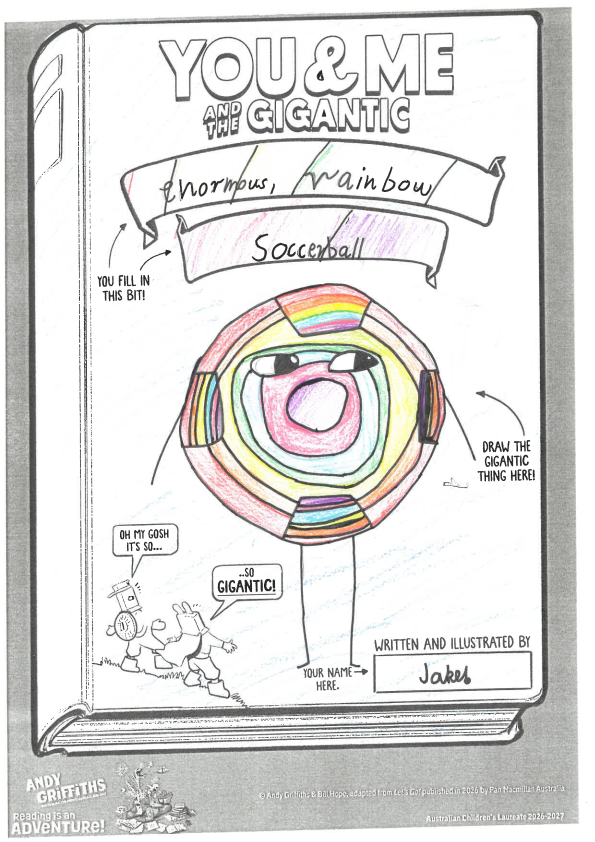 YOU & ME
AND THE GIGANTIC
enormous, rainbow
Soccerball
YOU FILL IN
THIS BIT!
DRAW THE
GIGANTIC
THING HERE!
OH MY GOSH
IT'S SO...
...SO
GIGANTIC!
WRITTEN AND ILLUSTRATED BY
YOUR NAME
HERE.
ANDY
GRIFFITHS
Reading is an
ADVENTURE!
© Andy Griffiths & Bill Hope, adapted from Let's Go! published in 2026 by Pan Macmillan Australia
Australian Children's Laureate 2026-2027